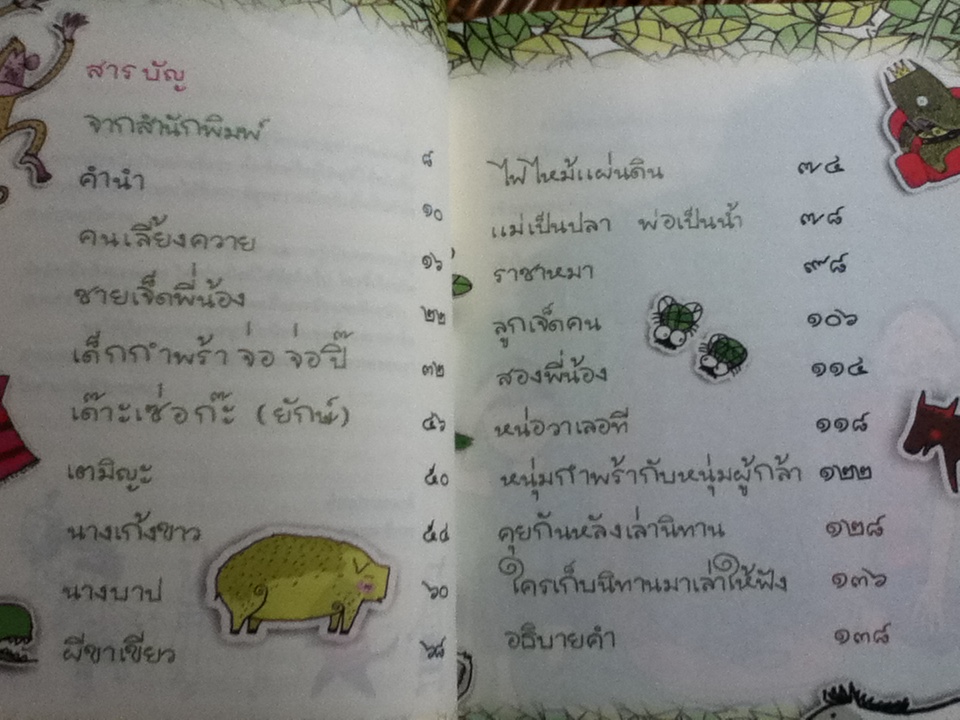 สารบัญ
จากสำนักพิมพ์ ๘
คำนำ ๑๐
คนเลี้ยงควาย ๑๖
ชายเจ็ดพี่น้อง ๒๒
เด็กกำพร้า จ่อ จ่อปี๊ ๓๒
เด๊าะเซ่อก๊ะ (ยักษ์) ๔๖
เตมิญะ ๕๐
นางเก้งขาว ๕๔
นางบาป ๖๐
ผีขาเขียว ๖๘
ไฟไหม้แผ่นดิน ๗๔
แม่เป็นปลา พ่อเป็นน้ำ ๗๘
ราชาหมา ๙๘
ลูกเจ็ดคน ๑๐๖
สองพี่น้อง ๑๑๔
หน่อวาเลอที ๑๑๘
หนุ่มกำพร้ากับหนุ่มผู้กล้า ๑๒๒
คุยกันหลังเล่านิทาน ๑๒๘
ใครเก็บนิทานมาเล่าให้ฟัง ๑๓๖
อธิบายคำ ๑๓๘